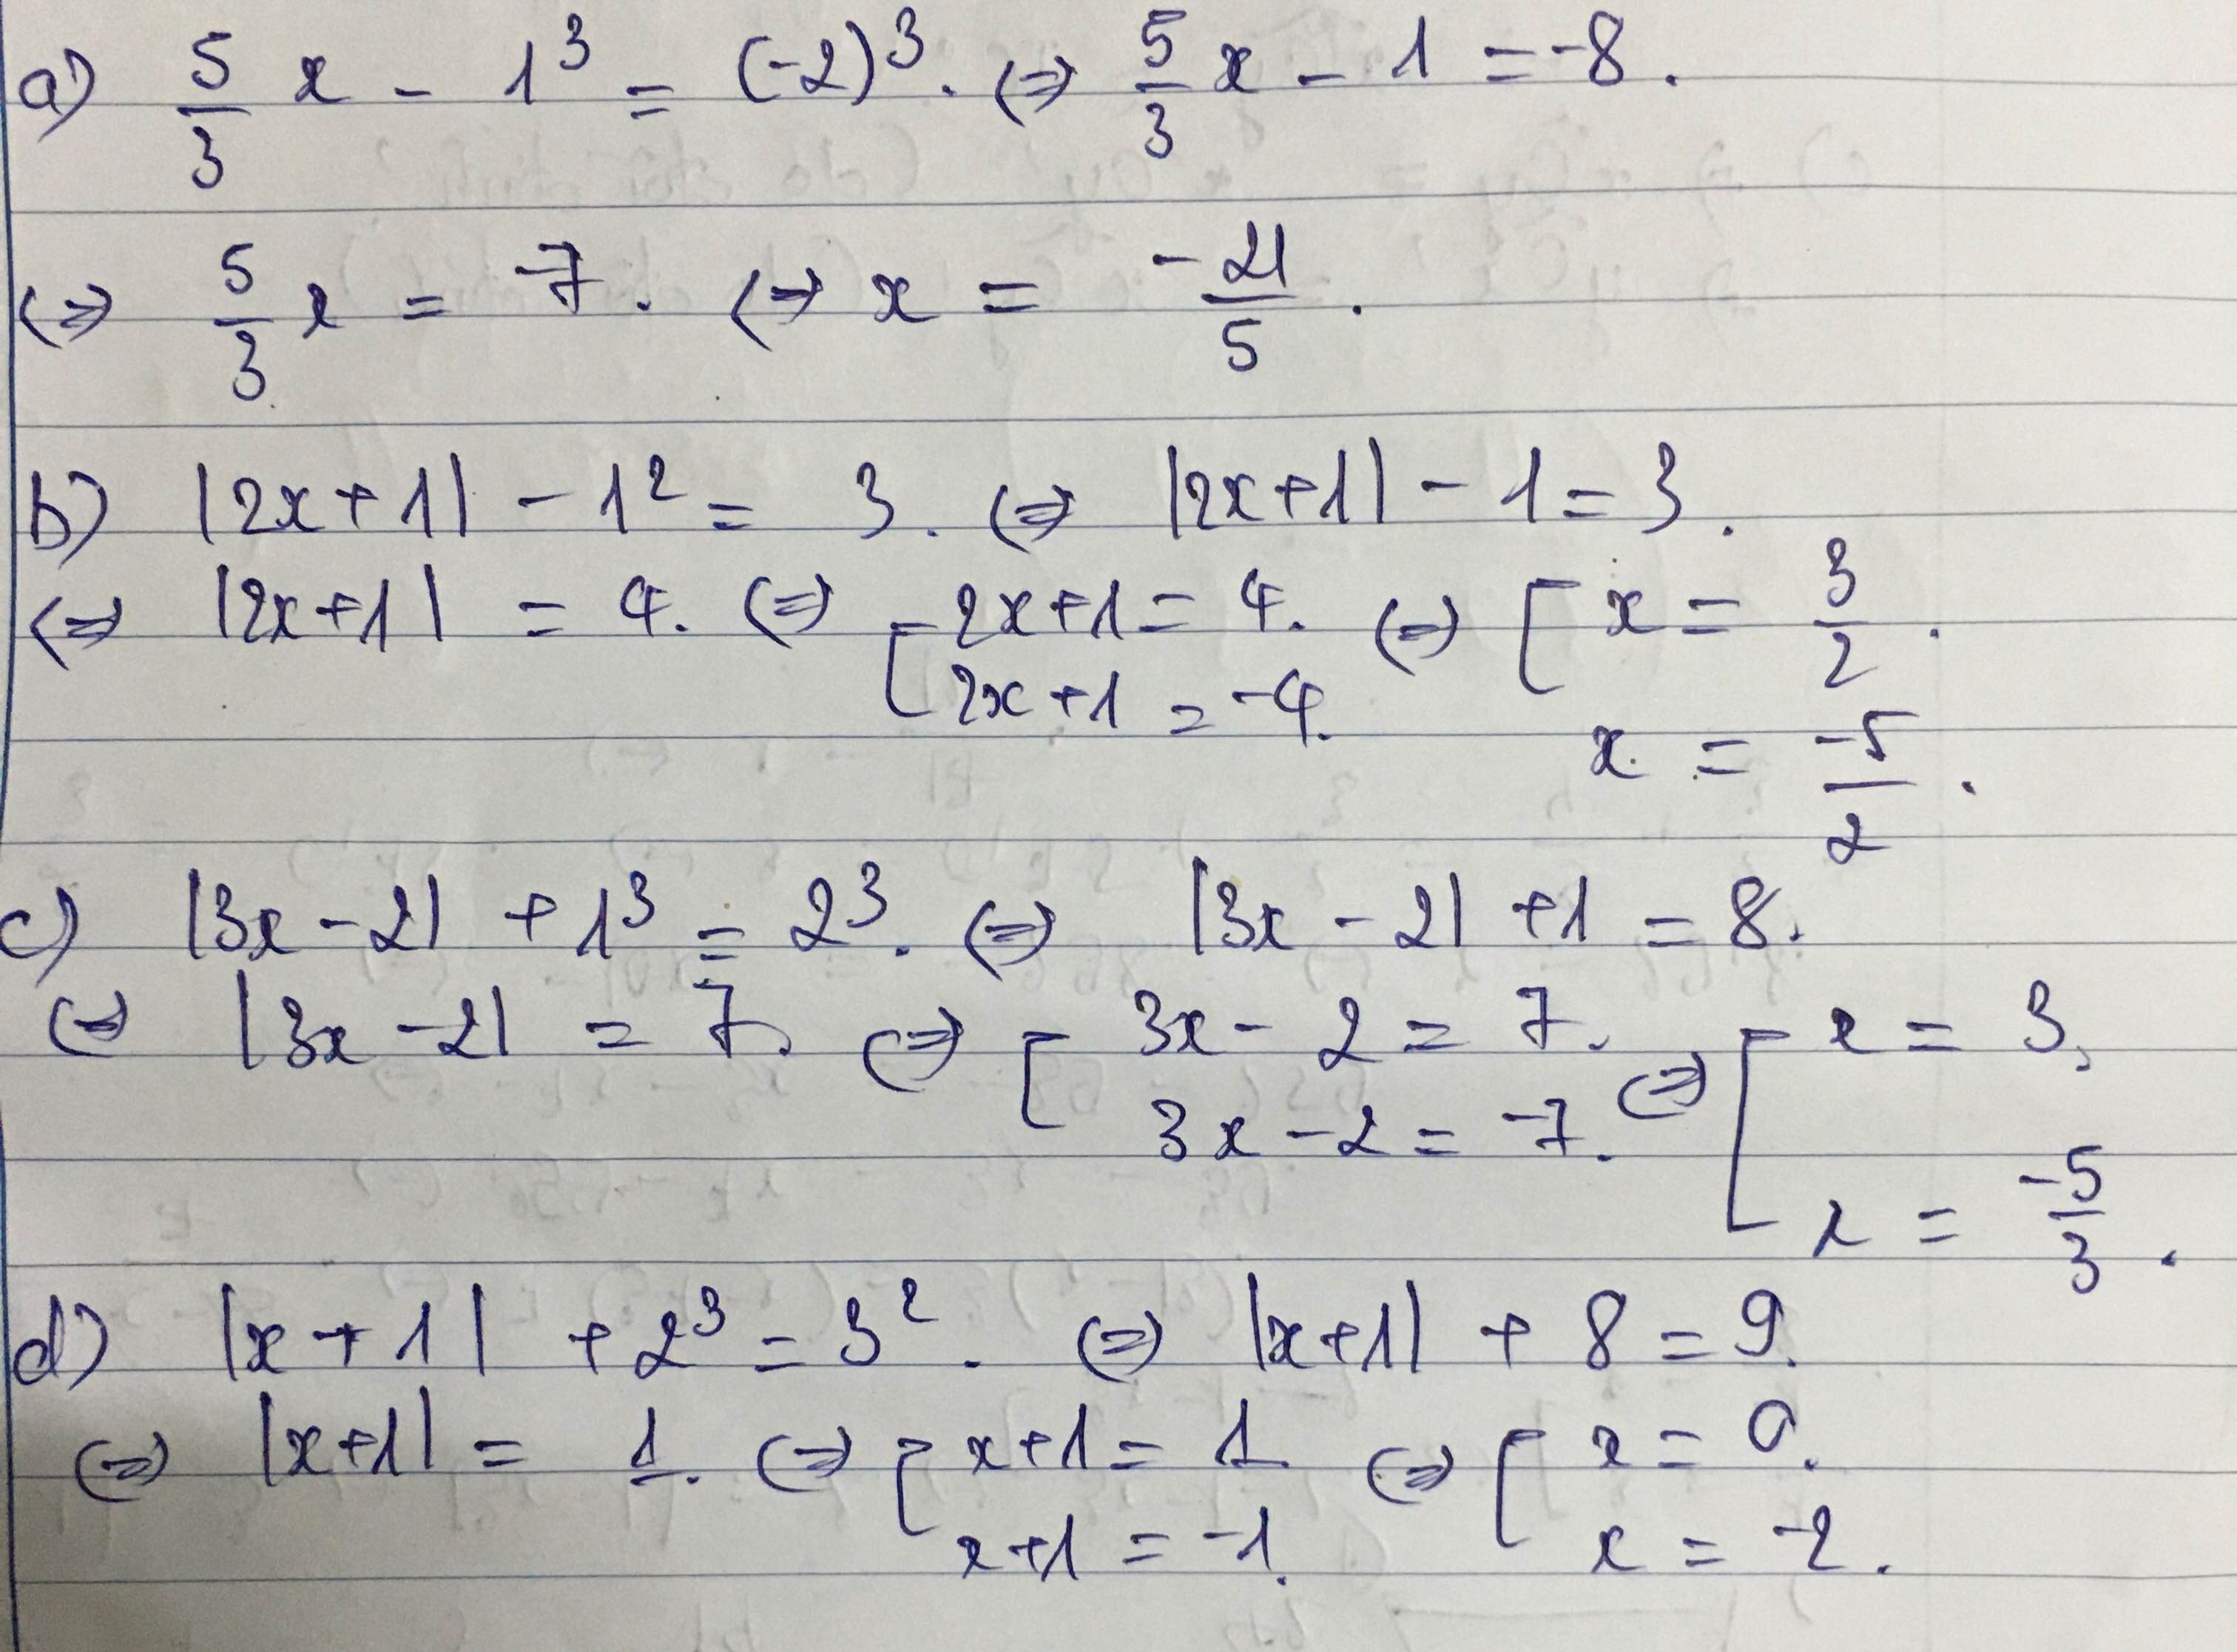 a) 5/3 x - 1³ = (-2)³. (=) 5/3 x - 1 = -8.
(=) 5/3 x = -7. (=) x = -21/5.
b) |2x+1| - 1² = 3. (=) |2x+1| - 1 = 3.
(=) |2x+1| = 4. (=) [ 2x+1 = 4. (=) [ x = 3/2.
2x+1 = -4. x = -5/2.
c) |3x-2| + 1³ = 2³. (=) |3x-2| + 1 = 8.
(=) |3x-2| = 7. (=) [ 3x-2 = 7. (=) [ x = 3.
3x-2 = -7. x = -5/3.
d) |x+1| + 2³ = 3². (=) |x+1| + 8 = 9.
(=) |x+1| = 1. (=) [ x+1 = 1 (=) [ x = 0.
x+1 = -1. x = -2.